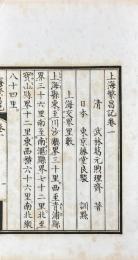 上海繁昌記卷一
清 武林葛元煦理齋 著
日本 東京藤堂良駿 訓點
上海交界里數
上海縣東至川沙廳界三十里西至青浦縣
界三十六里南至南滙縣界七十二里北至
寶山縣界十二里東西廣六十六里南北袤
八十四里